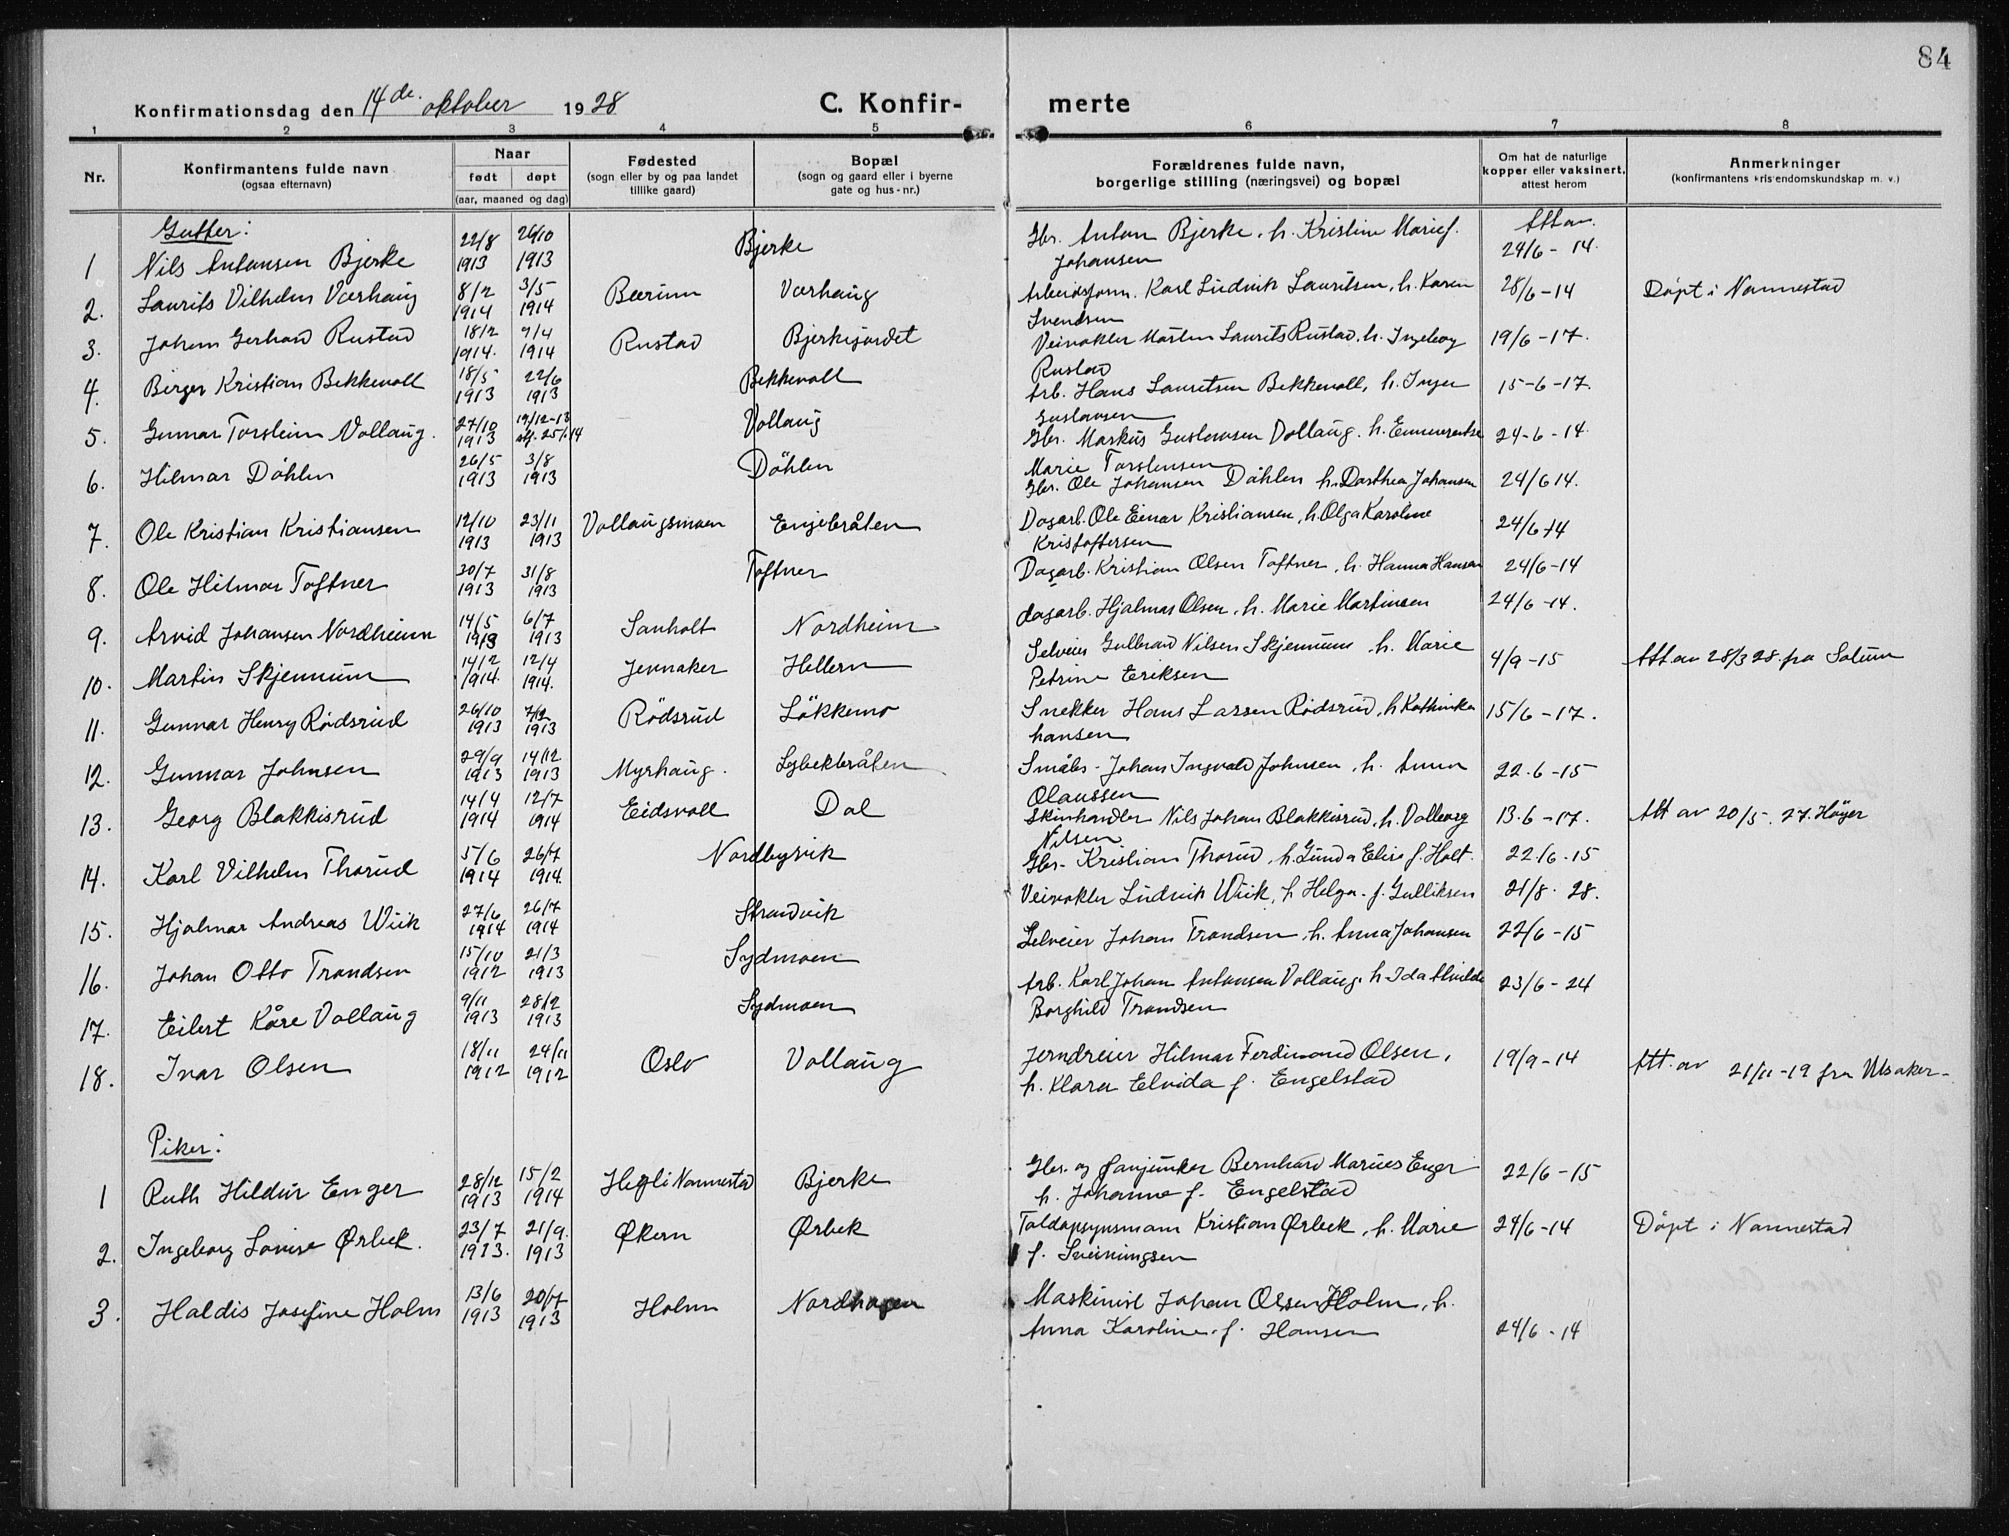 84
Konfirmationsdag den 14de oktober 1928 C. Konfir- merte
1 2 3 4 5 6 7 8
Nr. Konfirmantens fulde navn (ogsaa efternavn) Naar født døpt (aar, maaned og dag) Fødested (sogn eller by og paa landet tillike gaard) Bopæl (sogn og gaard eller i byerne gate og hus-nr.) Forældrenes fulde navn, borgerlige stilling (næringsvei) og bopæl Om hat de naturlige kopper eller vaksinert, attest herom Anmerkninger (konfirmantens kristendomskundskap m. v.)
Gutter:
1 Nils Antonsen Bjerke 22/8 1913 26/10 1913 Bjerke Gbr. Anton Bjerke, h. Kristine Marie f. Johansen Att av. 24/6-14.
2. Laurits Vilhelm Værhaug 8/2 1914 3/5 1914 Bærum Værhaug Arbeidsform. Karl Ludvik Lauritsen, h. Karen Svendsen 28/6-14 Døpt i Nannestad
3. Johan Gerhard Rustad 18/2 1914. 9/4 1914 Rustad Bjerkejordet Veivokter Morten Laurits Rustad, h. Ingeborg Rustad 19/6-17.
4. Birger Kristian Bekkevoll 18/5 1913 22/6 1913 Bekkevoll Arb. Hans Lauritsen Bekkevoll, h. Inger Gustavsen 15-6-17.
5. Gunnar Torstein Vollaug. 27/10 1913 19/12-13 25/1-14 Vollaug Gbr. Markus Gustavsen Vollaug. h. Emmerentse Marie Torstensen 24-6-14.
6. Hilmar Döhlen 26/5 1913 3/8 1913 Döhlen Gbr. Ole Johansen Döhlen h. Dorthea Johansen 24/6 14.
7. Ole Kristian Kristiansen 12/10 1913 23/11 1913 Vollaugsmoen Engebråten Dagarb. Ole Einar Kristiansen, h. Olga Karoline Kristoffersen 24/6-14
8. Ole Hilmar Toftner 30/7 1913 31/8 1913 Toftner Dagarb. Kristian Olsen Toftner, h. Hanna Hansen 24/6-14
9. Arvid Johansen Nordheim 14/5 1913 6/7 1913 Sanholt Nordheim dagarb. Hjalmar Olsen, h. Marie Martinsen 24/6-14.
10. Martin Skjennum 14/2 1914. 12/4 1914. Jevnaker Hellern Selveier Gulbrand Nilsen Skjennum h. Marie Petrine Eriksen 4/9-15 Att. av 28/3 28. fra Solum
11. Gunnar Henry Rödsrud 26/10 1913 7/12 1913 Rödsrud Lökkemo Snekker Hans Larsen Rödsrud, h Kathinka hansen 15/6-17.
12. Gunnar Johnsen 29/9 1913 14/12 1913 Myrhaug. Lybekbråten Småbr. Johan Ingvald Johnsen, h. Anna Olaussen 22.6-15
13. Georg Blakkisrud 14/4 1914 12/7 1914 Eidsvoll Dal Skinhandler Nils Johan Blakkisrud, h. Valborg Nilsen 13.6-17. Att av 20/5. 27. Höyer
14. Karl Vilhelm Thorud 5/6 1914 26/7 1914. Nordbysvik Gbr. Kristian Thorud, h. Gunda Elise f. Holt. 22/6-15
15. Hjalmar Andreas Wiik 27/6 1914 26/7 1914 Strandvik Veivokter Ludvik Wiik, h Helga f. Gulliksen 21/8. 28.
16. Johan Otto Trondsen 15/10 1912 21/3 1913 Sydmoen Selveier Johan Trondsen, h. Anna Johansen 22/6-15
17. Eilert Kåre Vollaug 9/11 1913 28/2 1913 Sydmoen Arb. Karl Johan Antonsen Vollaug, h Ida Alvilde Borghild Trondsen 23/6-24
18. Ivar Olsen 18/11 1912 24/11 1912 Oslo Vollaug Jerndreier Hilmar Ferdinand Olsen, h. Klara Elvida f. Engelstad 19/9-14 Att. av 21/11-19 fra Ulsaker-
Piker:
1 Ruth Hildur Enger 28/12 1913 15/2 1914 Hegli Nannestad Bjerke Gbr. og fanjunker Bernhard Marius Enger h. Johanne f. Engelstad 22/6-15
2. Ingeborg Lovise Ørbek. 23/7 1913. 21/9. 1913 Økern Ørbek Toldopsynsmann Kristian Ørbek, h. Marie f. Sveinungsen 24/6-14 Döpt i Nannestad
3. Haldis Josefine Holm 13/6 1913 20/7 1913 Holm Nordhagen Maskinist Johan Olsen Holm, h. Anna Karoline f. Hansen 24/6-14